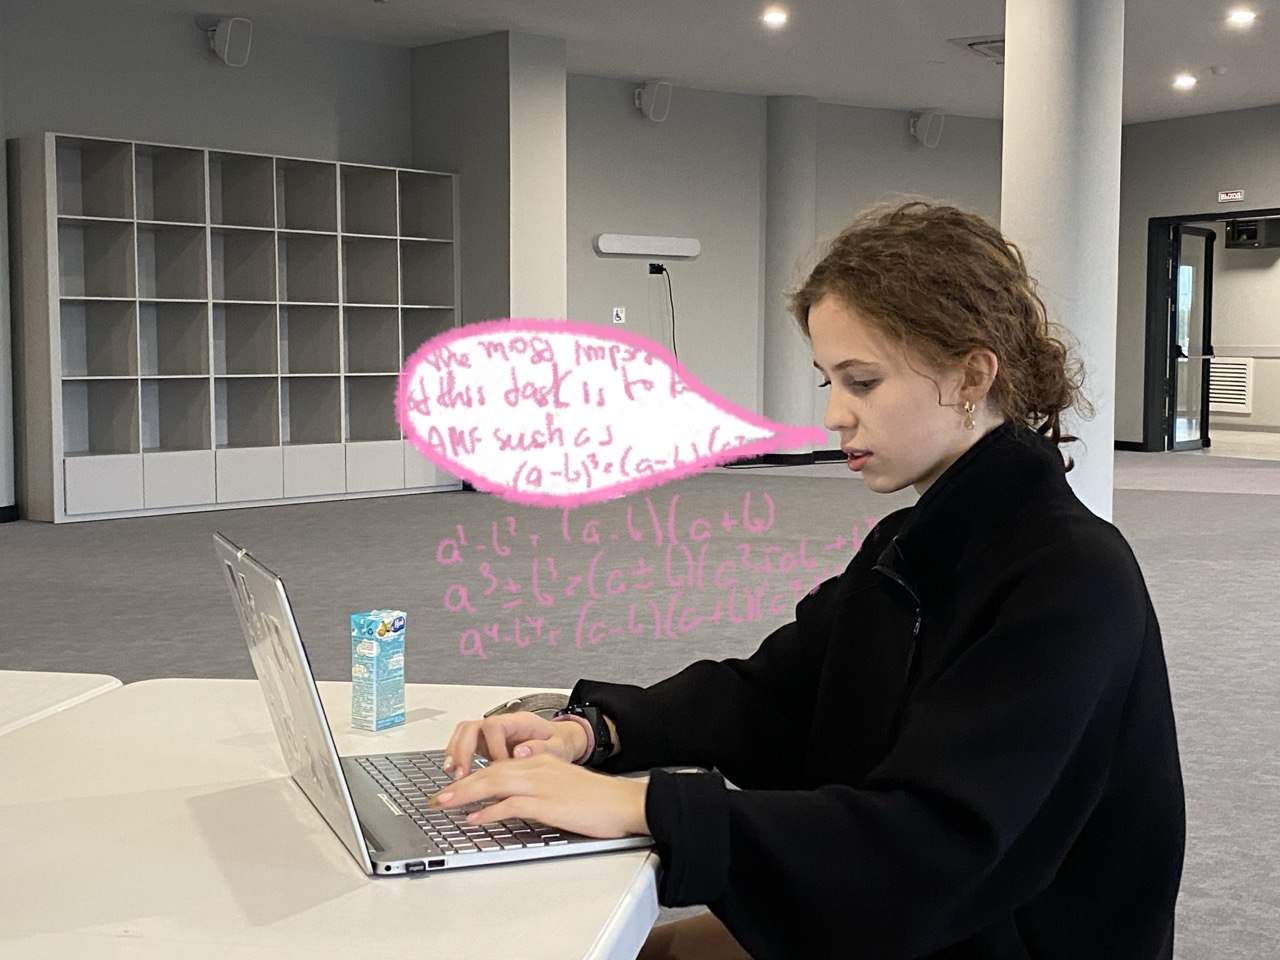 The most import
of this task is to
AMF such as
(a-b)³=(a-b)(a²
a²-b²=(a-b)(a+b)
a³±b³=(a±b)(a²±ab+b²
a⁴-b⁴=(a-b)(a+b)(a²+
ВЫХОД